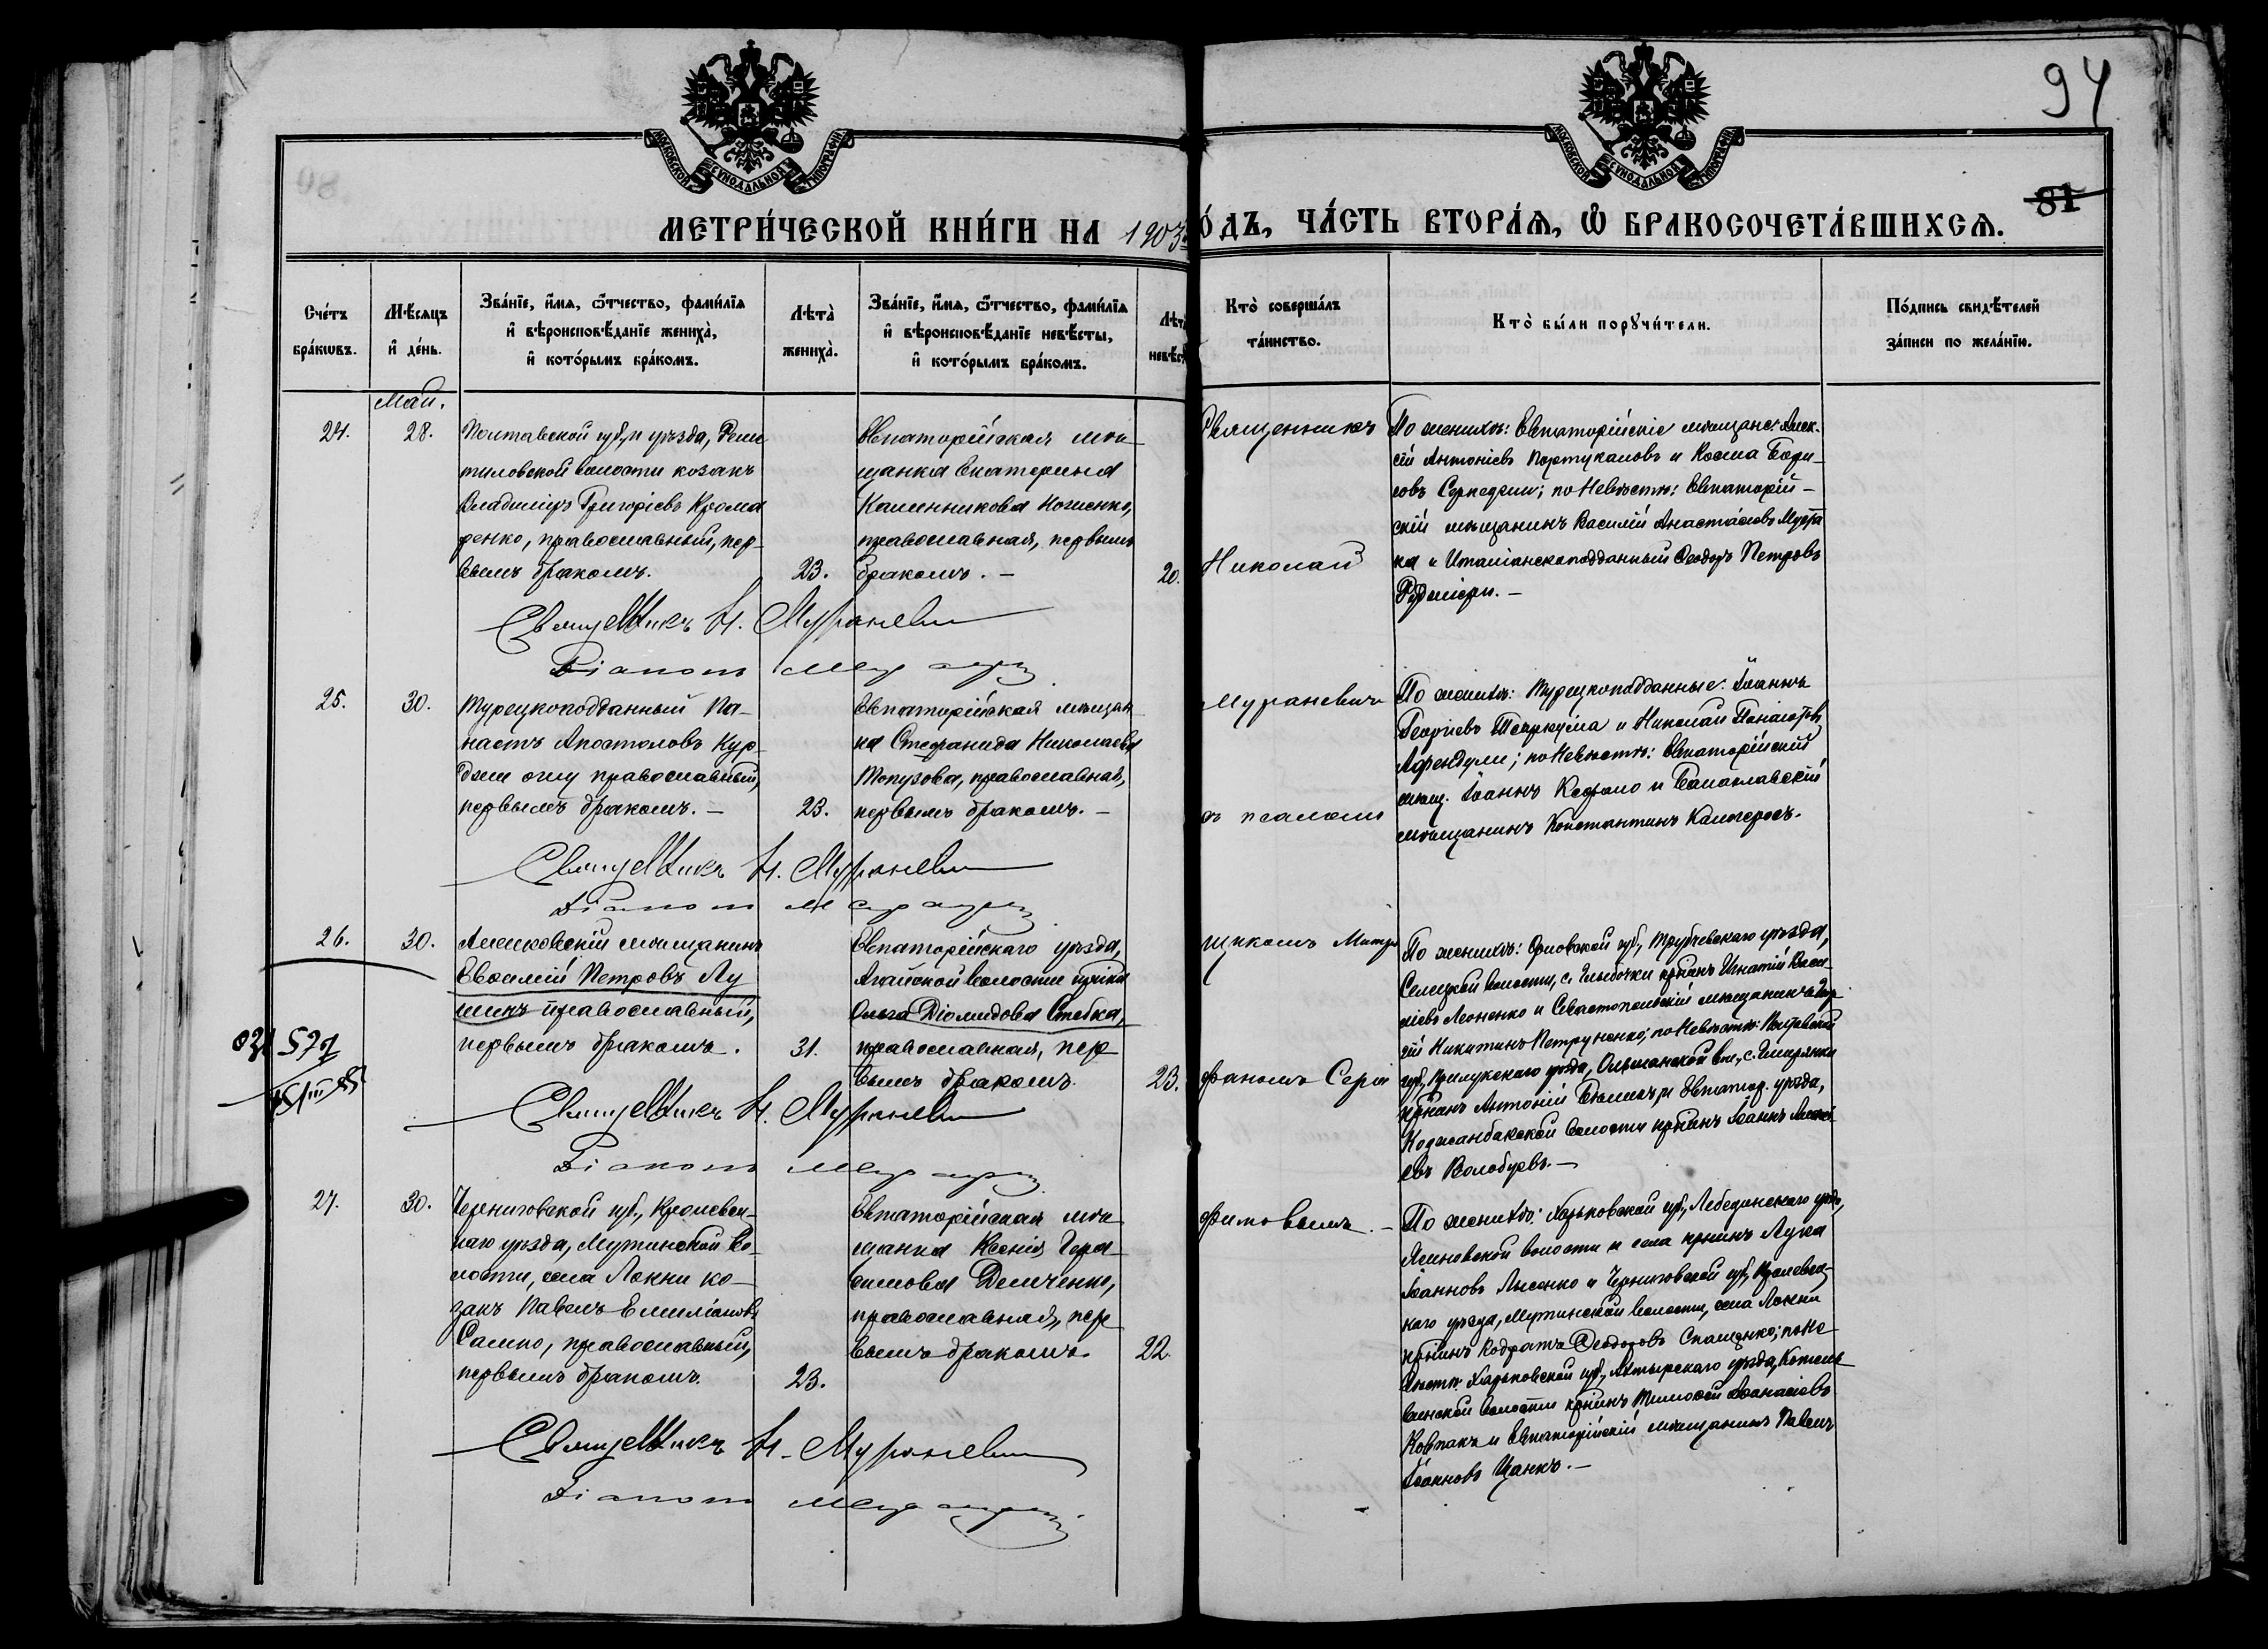 94
МОСКОВСКОЙ СѴНОДАЛЬНОЙ ТИПОГРАФІИ
МОСКОВСКОЙ СѴНОДАЛЬНОЙ ТИПОГРАФІИ
81
МЕТРИ́ЧЕСКОЙ КНИ́ГИ НА 1903 го́дъ, ЧА́СТЬ ВТОРА́Я, Ѽ БРАКОСОЧЕТА́ВШИХСЯ.
Сче́тъ бра́кωвъ.
Мѣ́сяцъ и҆ де́нь.
Зва́нїе, и҆́мя, ѻ҆́тчество, фами́лїя
и҆ вѣроисповѣ́данїе жениха̀,
и҆ кото́рымъ бра́комъ.
Лѣта̀ жениха̀.
Зва́нїе, и҆́мя, ѻ҆́тчество, фами́лїя
и҆ вѣроисповѣ́данїе невѣ́сты,
и҆ кото́рымъ бра́комъ.
Лѣта̀ невѣс
Кто̀ соверша́лъ
та́инство.
Кто̀ бы́ли порꙋчи́тели.
По́дпись свидѣ́телей
за́писи по жела́нїю.
Май.
24.
28.
Полтавской губ. и уѣзда, Реше
тиловской волости козакъ
Владиміръ Григоріевъ Крома
ренко, православный, пер-
вымъ бракомъ.
23.
Евпаторійская мѣ
щанка Екатерина
Каменникова Ноженко,
православная, первымъ
бракомъ. —
20.
Священникъ
Николай
По женихѣ: Евпаторійскіе мѣщане: Алек-
сій Антоніевъ Портукаловъ и Косма Бори-
совъ; по Невѣстѣ: Евпаторій-
скій мѣщанинъ Василій Анастасіевъ
ка и Италіанскоподданный Ѳеодоръ Петровъ
Священникъ Н. Мураневич
Діаконъ
25.
30.
Турецкоподданный Па-
настъ Апостоловъ Кур-
джи оглу православный,
первымъ бракомъ. —
23.
Евпаторійская мѣщан
ка Стефанида Николаева
Топузова, православная,
первымъ бракомъ. —
Мураневичъ
съ псалом
По женихѣ: Турецкоподданные: Іоаннъ
Георгіевъ и Николай Панаіотовъ
Афендули; по Невѣстѣ: Евпаторійскій
мѣщ. Іоаннъ Кефало и
мѣщанинъ Константинъ Калогеросъ.
Священникъ Н. Мураневич
Діаконъ
26.
30.
Алешковскій мѣщанинъ
Евѳимій Петровъ Лу
шинъ православный,
первымъ бракомъ.
31.
Евпаторійскаго уѣзда,
Агайской волости
Ольга Діомидова Стебка,
православная, пер
вымъ бракомъ.
23.
щикомъ Митро
фаномъ Сера
По женихѣ: Орловской губ., Трубчевскаго уѣзда,
Селецкой волости, с. Глыбочки Игнатій Васи-
ліевъ Леоненко и Севастопольскій мѣщанинъ
Никитинъ Петруненко; по Невѣстѣ: Полтавской
губ., Прилукскаго уѣзда, Ольшанской вол.,
Антоній и Евпатор. уѣзда,
волости Іоаннъ Алексі
евъ Волобуевъ. —
571
Священникъ Н. Мураневич
Діаконъ
27.
30.
Черниговской губ., Кролевец-
каго уѣзда, Мутинской во-
лости, села Локни ко-
закъ Павелъ Емиліановъ
Сашко, православный,
первымъ бракомъ.
23.
Евпаторійская мѣ
щанка Ксенія Гера
симова Демченко,
православная, пер
вымъ бракомъ.
22.
фимовымъ. —
По женихѣ: Харьковской губ., Лебединскаго уѣзда,
Ясеновской волости и села Лука
Іоанновъ Лысенко и Черниговской губ., Кролевец-
каго уѣзда, Мутинской волости, села Локни
Кодратъ Ѳеодоровъ Спащенко; по Не
вѣстѣ: Харьковской губ., Ахтырскаго уѣзда, Котель
венской волости Тимоѳей Аѳанасіевъ
Ковпакъ и Евпаторійскій мѣщанинъ Павелъ
Іоанновъ Цанкъ. —
Священникъ Н. Мураневич
Діаконъ